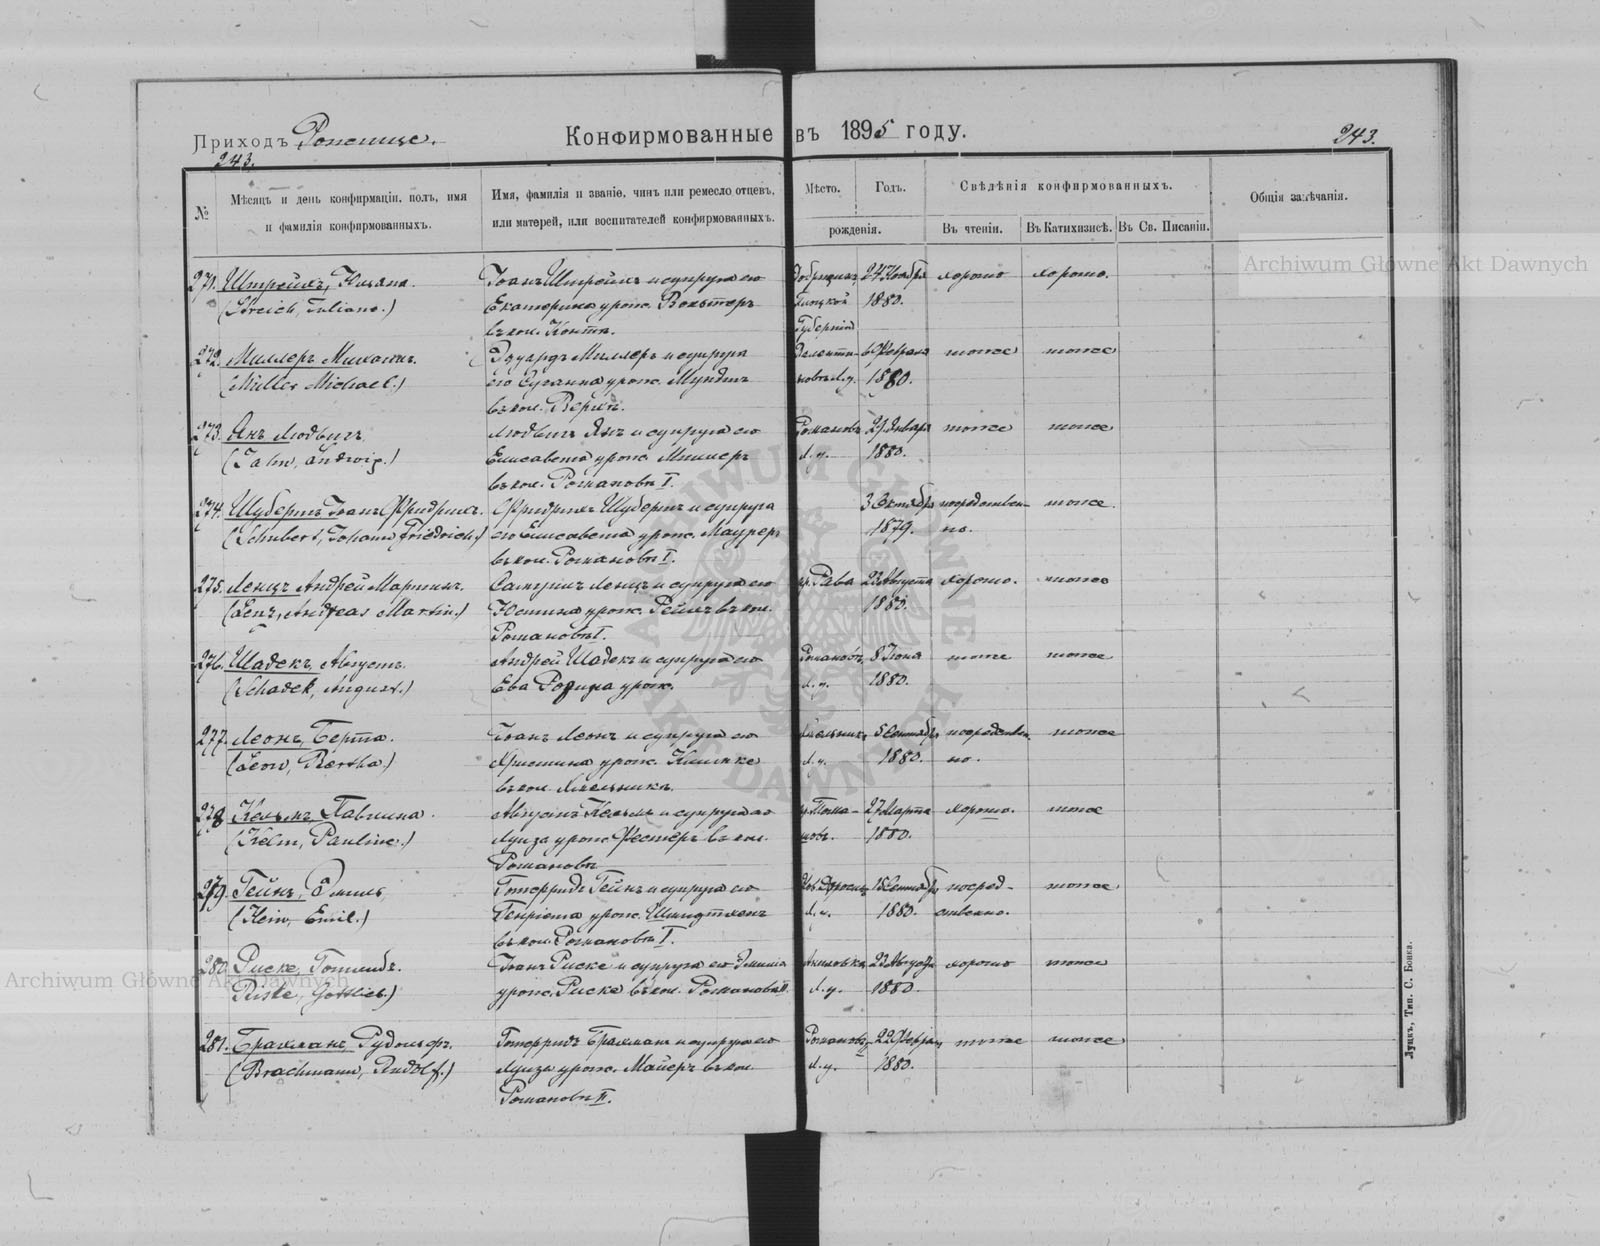 Приходъ Рожище.
Конфирмованные въ 1895 году.
243.
243.
№
Мѣсяцъ и день конфирмаціи, полъ, имя
и фамилія конфирмованныхъ.
Имя, фамилія и званіе, чинъ или ремесло отцевъ,
или матерей, или воспитателей конфирмованныхъ.
Мѣсто.
Годъ.
рожденія.
Свѣдѣнія конфирмованныхъ.
Въ чтеніи.
Въ Катихизисѣ.
Въ Св. Писаніи.
Общія замѣчанія.
271. Штрейхъ, Юліана.
(Streich, Juliana.)
Іоанъ Штрейхъ и супруга его
Екатерина урож. Вольтеръ
въ кол.
24 Ноября
1880.
Губерніи
хорошо
хорошо.
272. Миллеръ Михаилъ.
(Müller Michael.)
Эдуардъ Миллеръ и супруга
его Сузанна урож.
въ кол.
6 Февраля
1880.
тоже
тоже
273. Янъ Людвигъ
(Jahn, Ludwig.)
Людвигъ Янъ и супруга его
Елисавета урож. Миллеръ
въ кол. Романовъ I.
Романовъ
Л. у.
21 Января
1880.
тоже
тоже
274. Шубертъ Іоанъ Фридрихъ.
(Schubert, Johann Friedrich.)
Фридрихъ Шубертъ и супруга
его Елисавета урож. Маурер
въ кол. Романовъ I.
3 Октября
1879.
посредствен-
но.
тоже.
275. Ленцъ Андрей Мартинъ.
(Lenz, Andreas Martin.)
Ленцъ и супруга его
Юстина урож. въ кол.
Романовъ I.
Рава
23 Августа
1880.
хорошо.
тоже
276. Шадекъ, Августъ.
(Schadek, August.)
Андрей Шадекъ и супруга его
Ева Розина урож.
Романовъ,
Л. у.
8 Іюня
1880.
тоже
тоже
277. Леонъ, Берта.
(Leon, Bertha.)
Іоанъ Леонъ и супруга его
Христина урож.
въ кол.
Л. у.
5 Сентябр
1880.
посредствен.
но.
тоже
278 Кельмъ Павлина.
(Kelm, Pauline.)
Августъ Кельмъ и супруга его
Луиза урож. Фестеръ въ кол.
Романовъ
27 Марта
1880.
хорошо.
тоже
279. Гейнъ, Эмиль,
(Hein, Emil.)
Готфридъ Гейнъ и супруга его
Генріета урож.
въ кол. Романовъ I.
Л. у.
18 Сентябр
1880.
посред-
ственно.
тоже
280. Риске, Готлибъ.
Riske, Gottlieb.)
Іоанъ Риске и супруга его Эмилія
урож. Риске въ кол. Романовъ II
Л. у.
23 Августа
1880.
хорошо
тоже
281. Брахманъ, Рудольфъ.
(Brachmann, Rudolf.)
Готфридъ Брахманъ и супруга его
Луиза урож. Майеръ въ кол.
Романовъ II.
Романовъ
Л. у.
22 Феврал
1880.
тоже
тоже
Луцкъ, Тип. С. Бонка.
Archiwum Główne Akt Dawnych
Archiwum Główne Akt Dawnych
ARCHIWUM GŁÓWNE AKT DAWNYCH